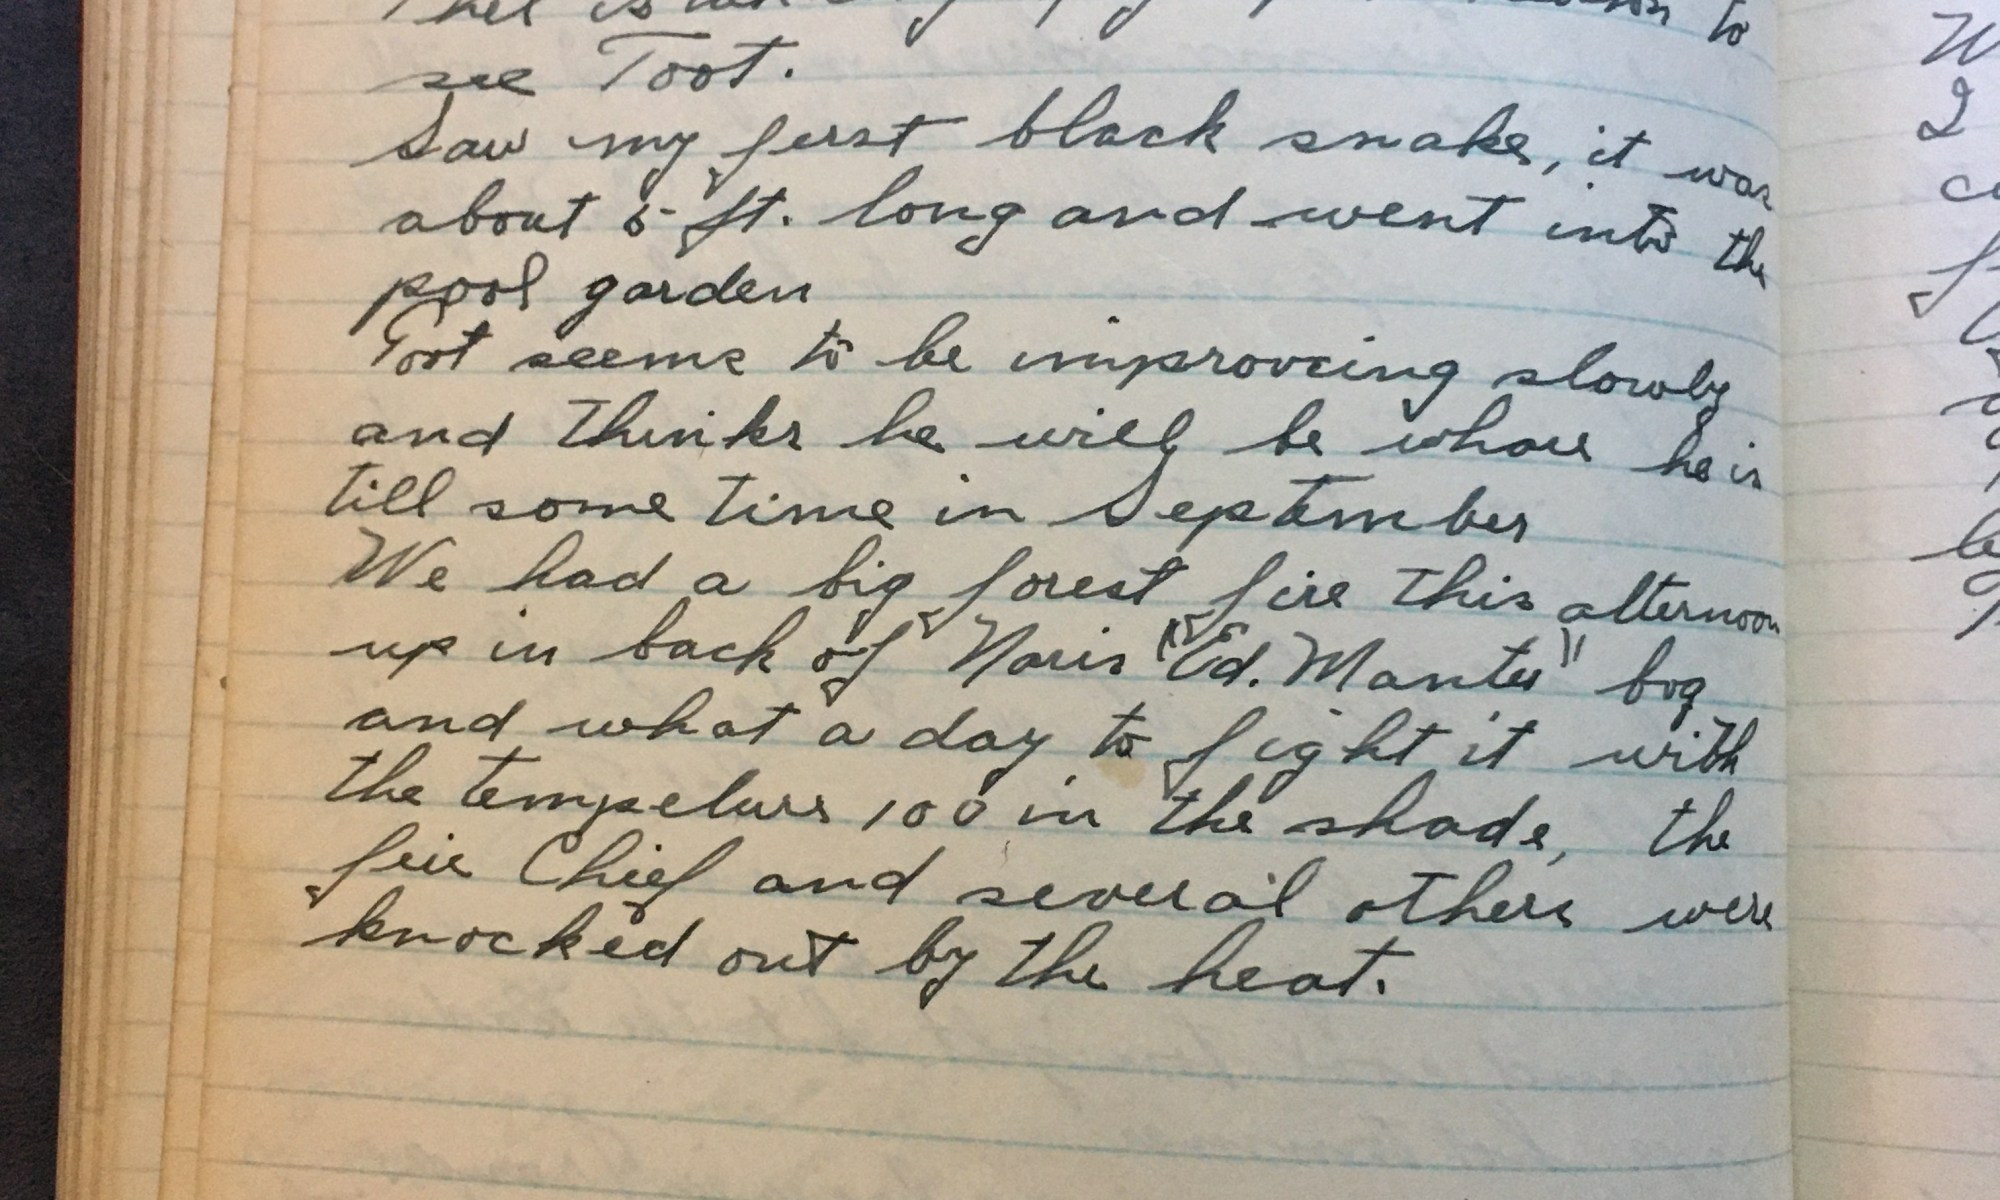 to
see Toot.
Saw my first black snake, it was
about 5 ft. long and went into the
pool garden
Toot seems to be improving slowly
and thinks he will be whare he is
till some time in September
We had a big forest fire this afternoon
up in back of Naris "Ed. Manter" bog
and what a day to fight it with
the tempeture 100 in the shade, the
fire Chief and several others were
knocked out by the heat.
W
I